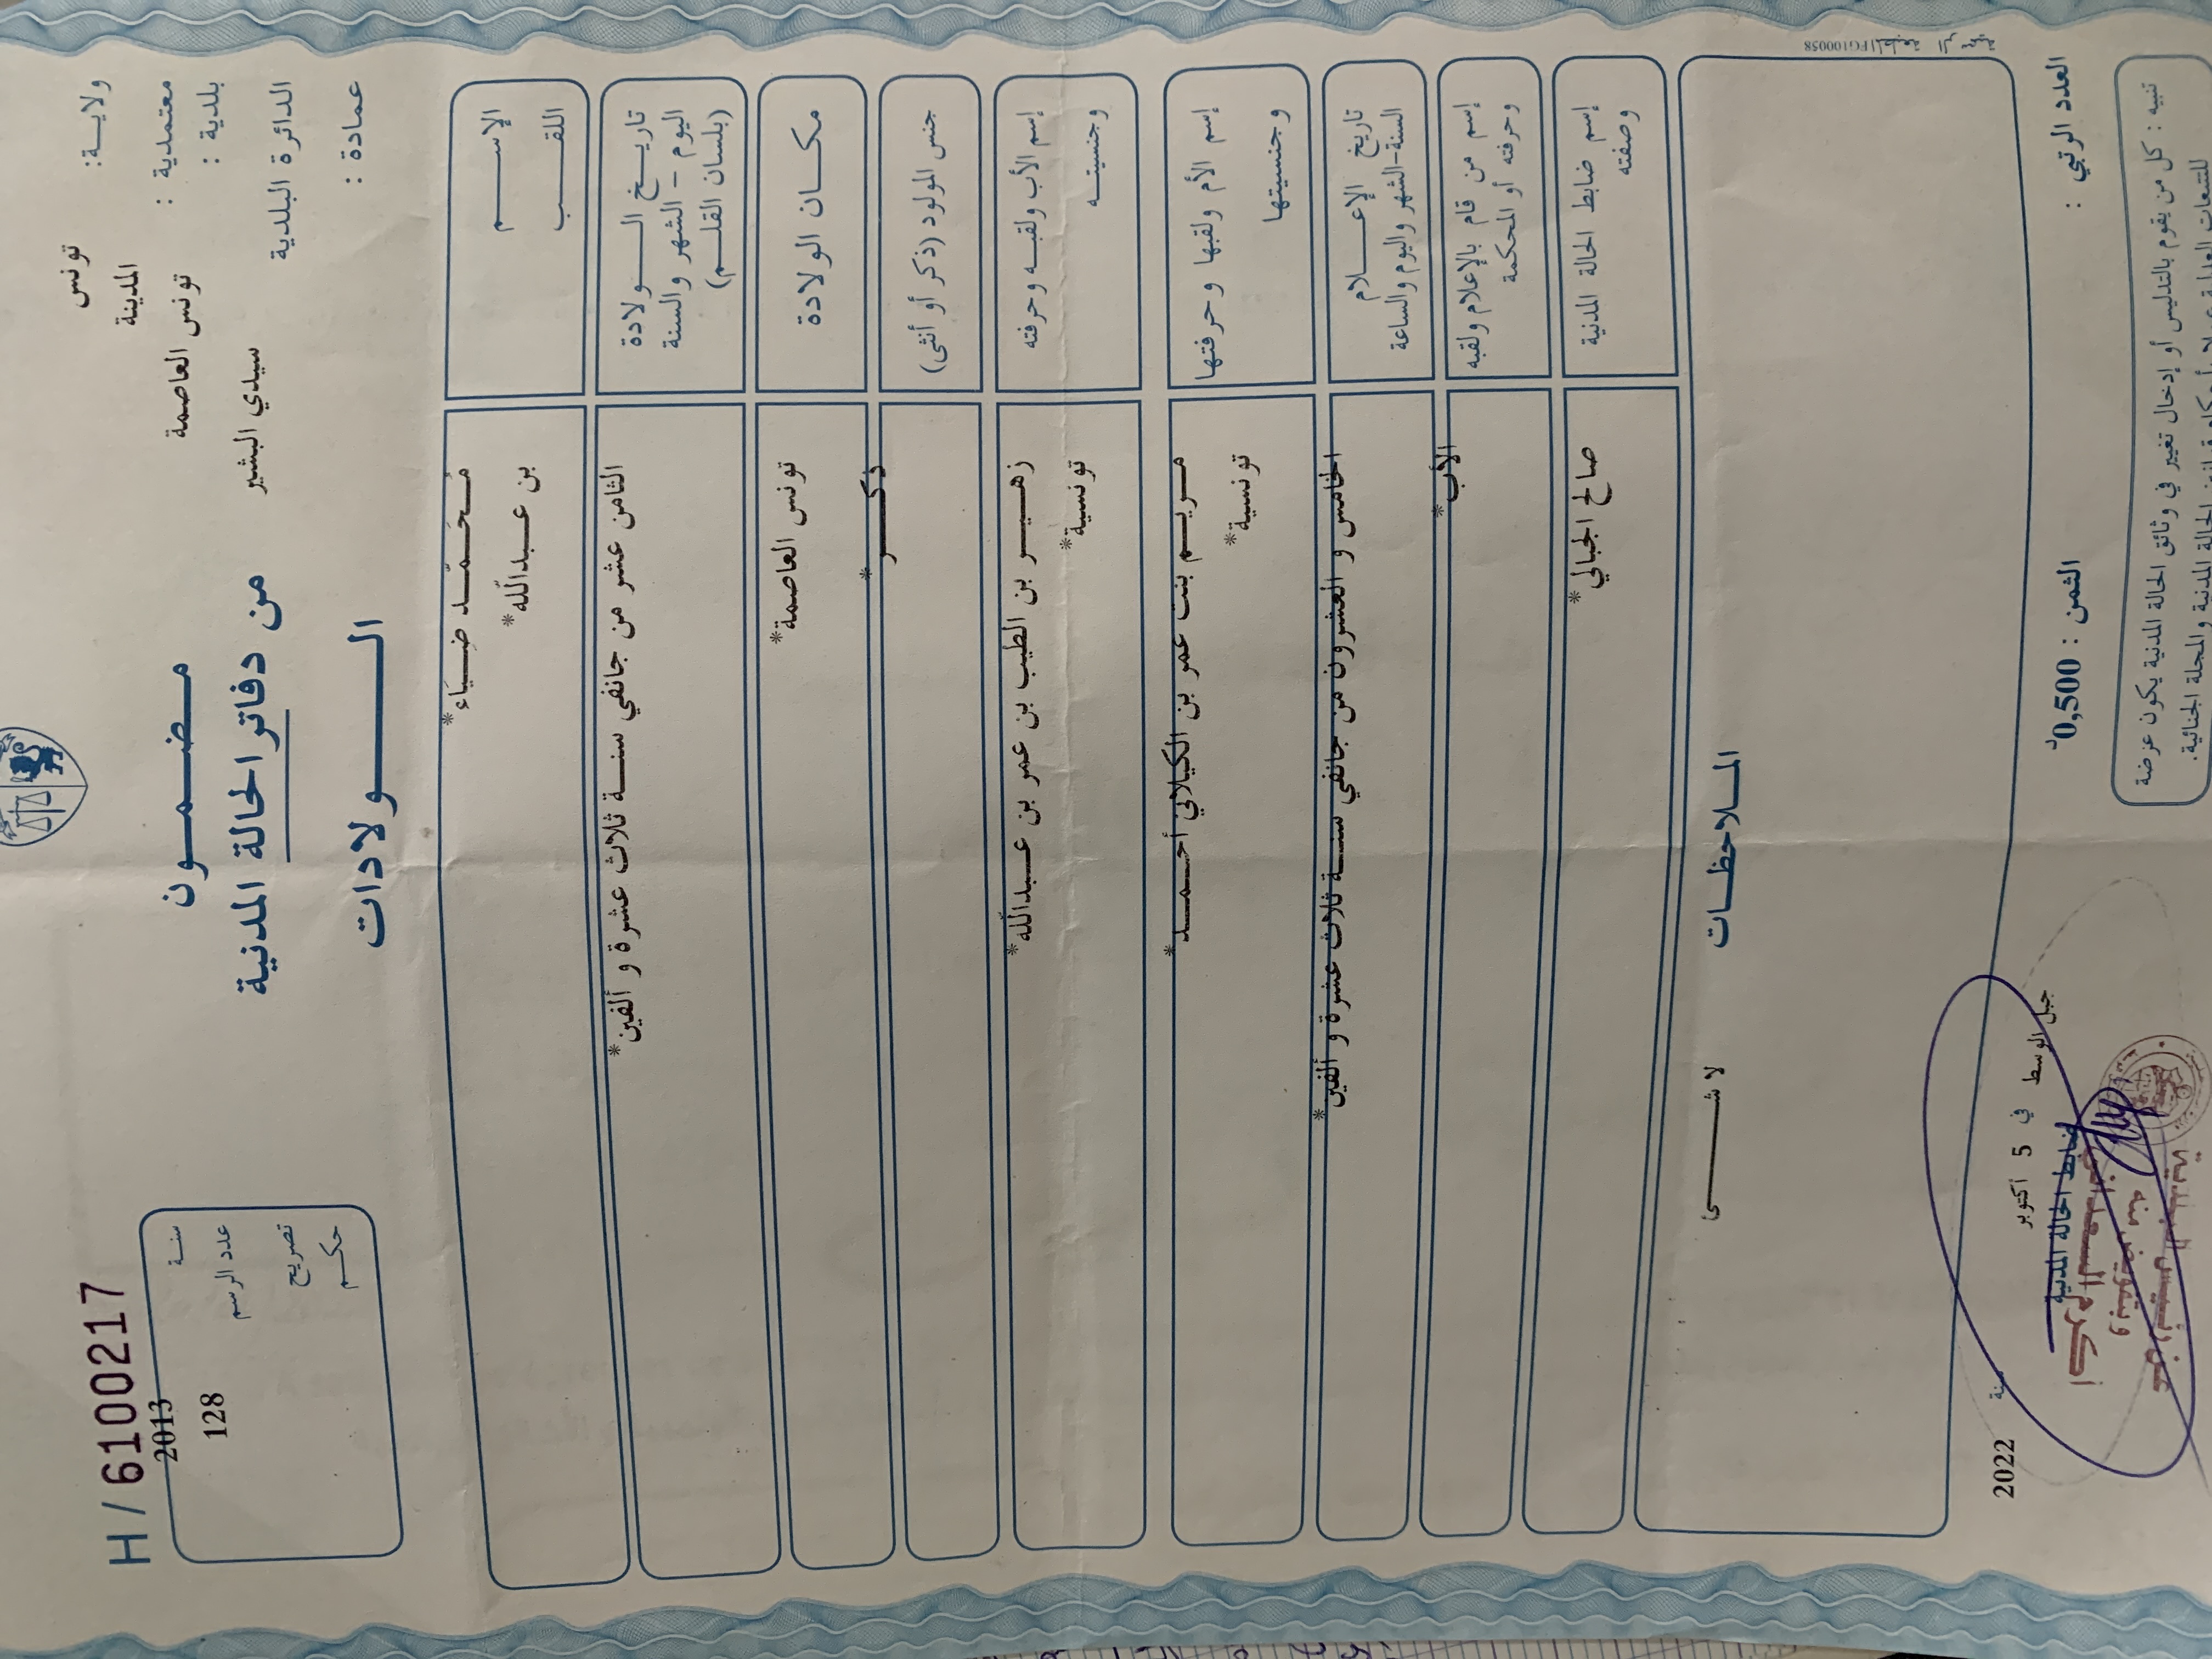 H / 6100217
سنة 2013
عدد الرسم 128
تصريح
حكم
ولاية: تونس
معتمدية : المدينة
بلدية : تونس العاصمة
الدائرة البلدية سيدي البشير
عمادة :
مضمون
من دفاتر الحالة المدنية
الولادات
الاسم مُحَمَّد ضيَاء*
اللقب بن عبدالله*
تاريخ الولادة
اليوم - الشهر والسنة
(بلسان القلم)
الثامن عشر من جانفي سنة ثلاث عشرة و ألفين*
مكان الولادة تونس العاصمة*
جنس المولود (ذكر أو أنثى) ذكر*
إسم الأب ولقبه وحرفته زهير بن الطيب بن عمر بن عبدالله*
وجنسيته تونسية*
إسم الأم ولقبها وحرفتها مريم بنت عمر بن الكيلاني أحمد*
وجنسيتها تونسية*
تاريخ الإعلام
السنة-الشهر واليوم والساعة
الخامس و العشرون من جانفي سنة ثلاث عشرة و ألفين*
إسم من قام بالإعلام ولقبه
وحرفته أو المحكمة
الأب*
إسم ضابط الحالة المدنية
وصفته
صالح الجبالي*
الملاحظات
لا شى
PG100058
جبل الوسط في 5 أكتوبر سنة 2022
ضابط الحالة المدنية
أكرم السعداني
العدد الرتبي :
الثمن : 0,500د
تنبيه : كل من يقوم بالتدليس أو إدخال تغيير في وثائق الحالة المدنية يكون عرضة
الحالة المدنية والمجلة الجنائية.